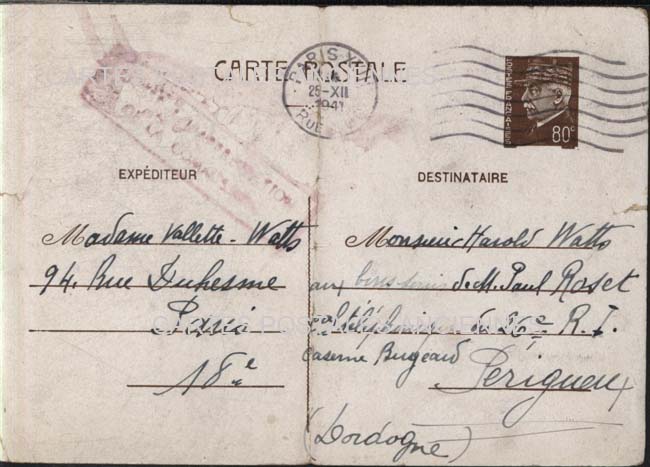 CARTE POSTALE
PARIS-XVIII
25-XII
1941
RUE
POSTES FRANÇAISES
80c
EXPÉDITEUR
Madame Vallette-Watts
94. Rue Duhesme
Paris
18e
DESTINATAIRE
Monsieur Harold Watts
aux bons soins de M. Paul Roset
26e R. I.
Caserne Bugeaud
Périgueux
(Dordogne)
CARTES POSTALES ANCIENNES